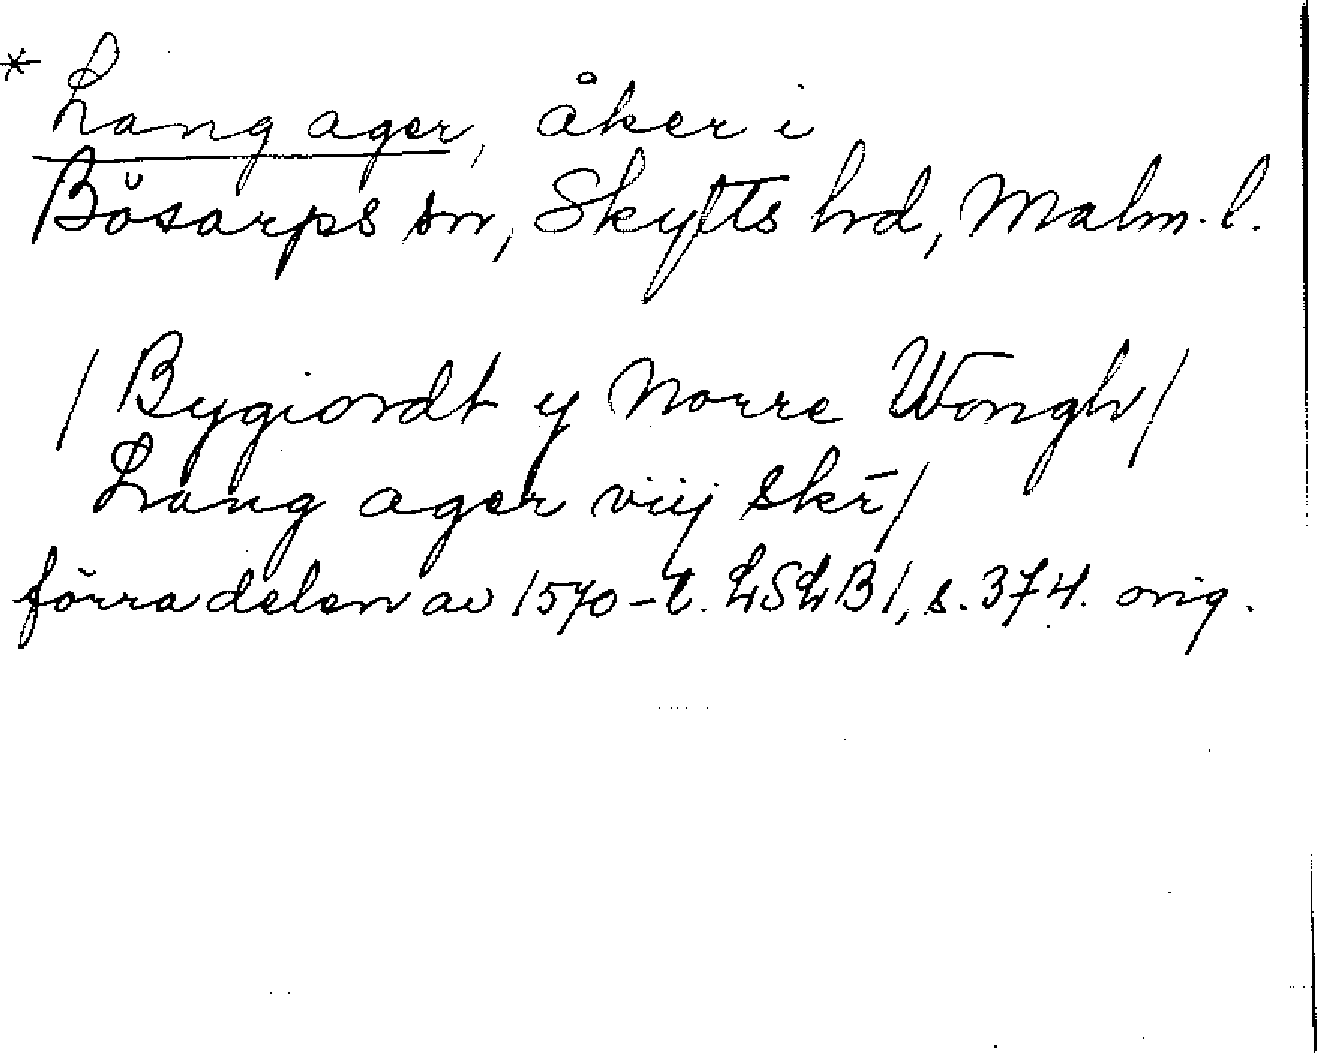 * Lang ager, åker i
Bösarps sn, Skytts hd, Malm. l.
/ Bygiordt y Norre Wongh/
Lang ager viij skr̄/
förra delen av 1570-t. LSLB1, s. 374. orig.